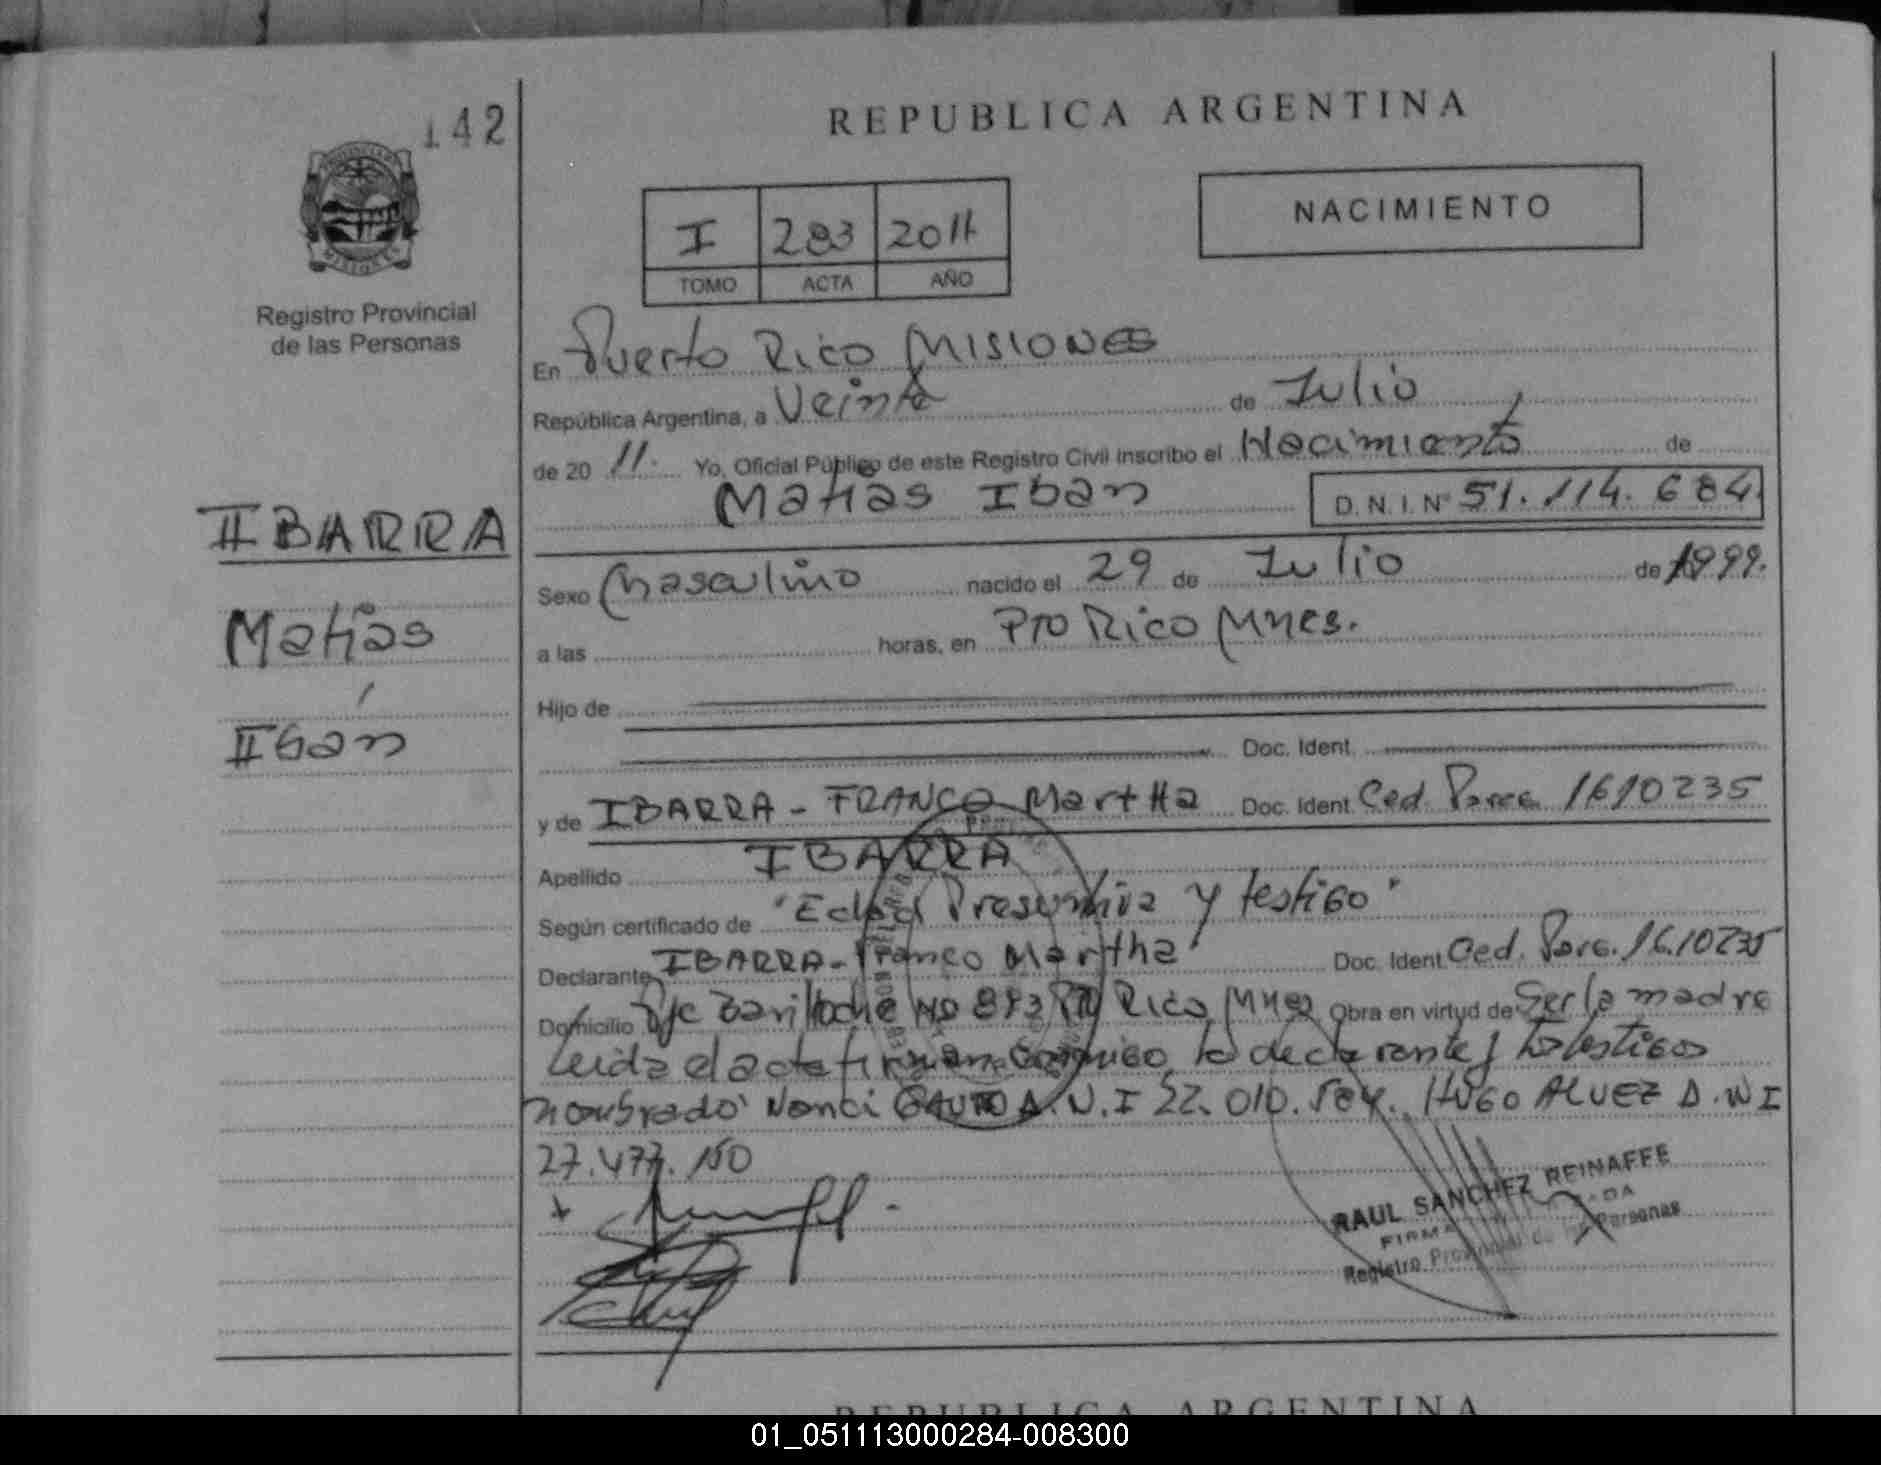 142
REPUBLICA ARGENTINA
NACIMIENTO
I 283 2011
TOMO ACTA AÑO
Registro Provincial
de las Personas
En Puerto Rico MISIONES
República Argentina, a Veinte de Julio
de 20 11. Yo, Oficial Público de este Registro Civil inscribo el Nacimiento de
Matias Iban D.N.I. Nº 51.114.684
IBARRA
Matias
Ibán
Sexo Masculino nacido el 29 de Julio de 1999.
a las horas, en Pto Rico Mnes.
Hijo de
Doc. Ident.
y de IBARRA - FRANCO Martha Doc. Ident. Ced. Parag. 1610235
Apellido IBARRA
Según certificado de "Edad Presuntiva y testigo"
Declarante IBARRA - Franco Martha Doc. Ident. Ced. Parg. 1610235
Domicilio Pje Bariloche Nº Pto Rico Mnes Obra en virtud de Ser la madre
Leida el acta firman conmigo la declarante y los testigos
nombrado Nanci GAUTO D.N.I 22.010. HUGO ALVEZ D.N.I
27.477.150
RAUL SANCHEZ REINAFFE
Registro Provincial de las Personas
REPUBLICA ARGENTINA
01_051113000284-008300